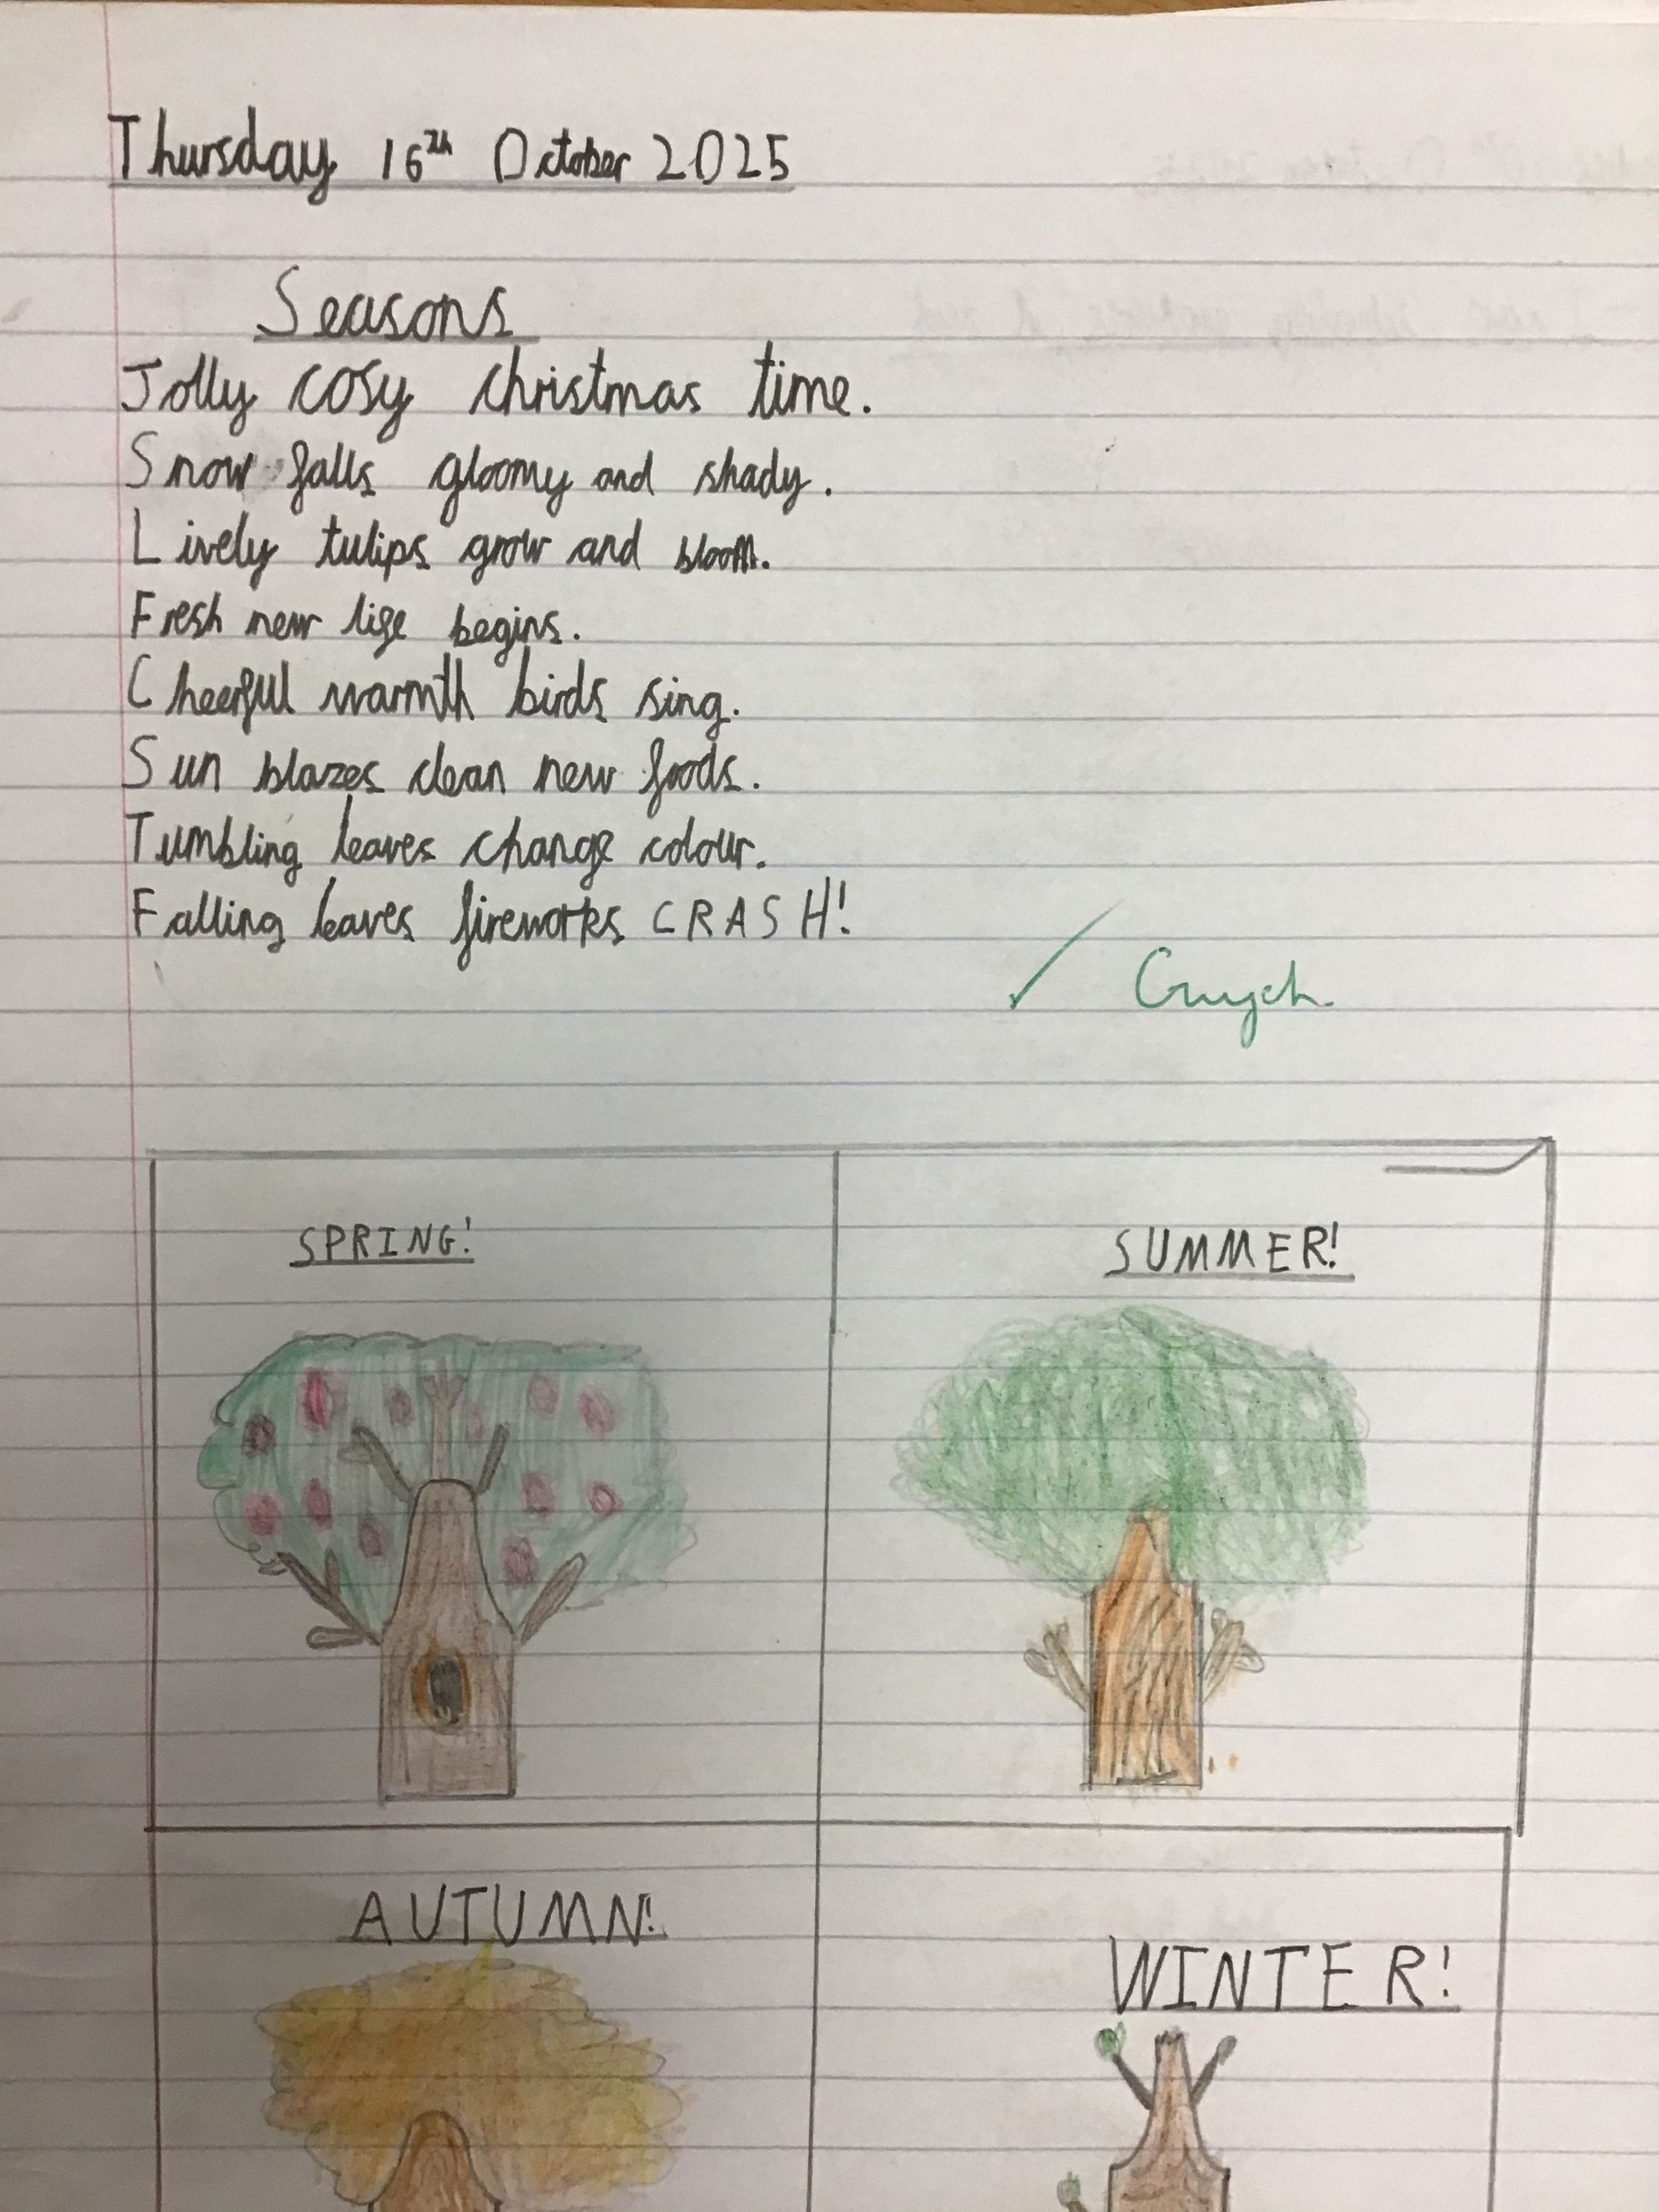 Thursday 16th October 2025
Seasons
Jolly cosy christmas time.
Snow falls gloomy and shady.
Lively tulips grow and bloom.
Fresh new life begins.
Cheerful warmth birds sing.
Sun blazes clean new foods.
Tumbling leaves change colour.
Falling leaves fireworks CRASH!
SPRING!
SUMMER!
AUTUMN!
WINTER!